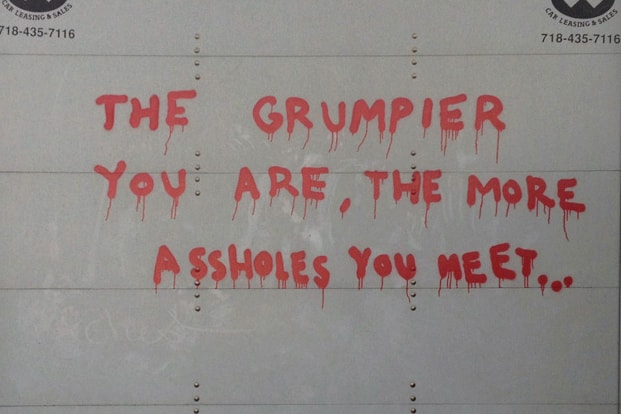 CAR LEASING & SALES
718-435-7116
CAR LEASING & SALES
718-435-7116
THE GRUMPIER
YOU ARE, THE MORE
ASSHOLES YOU MEET...